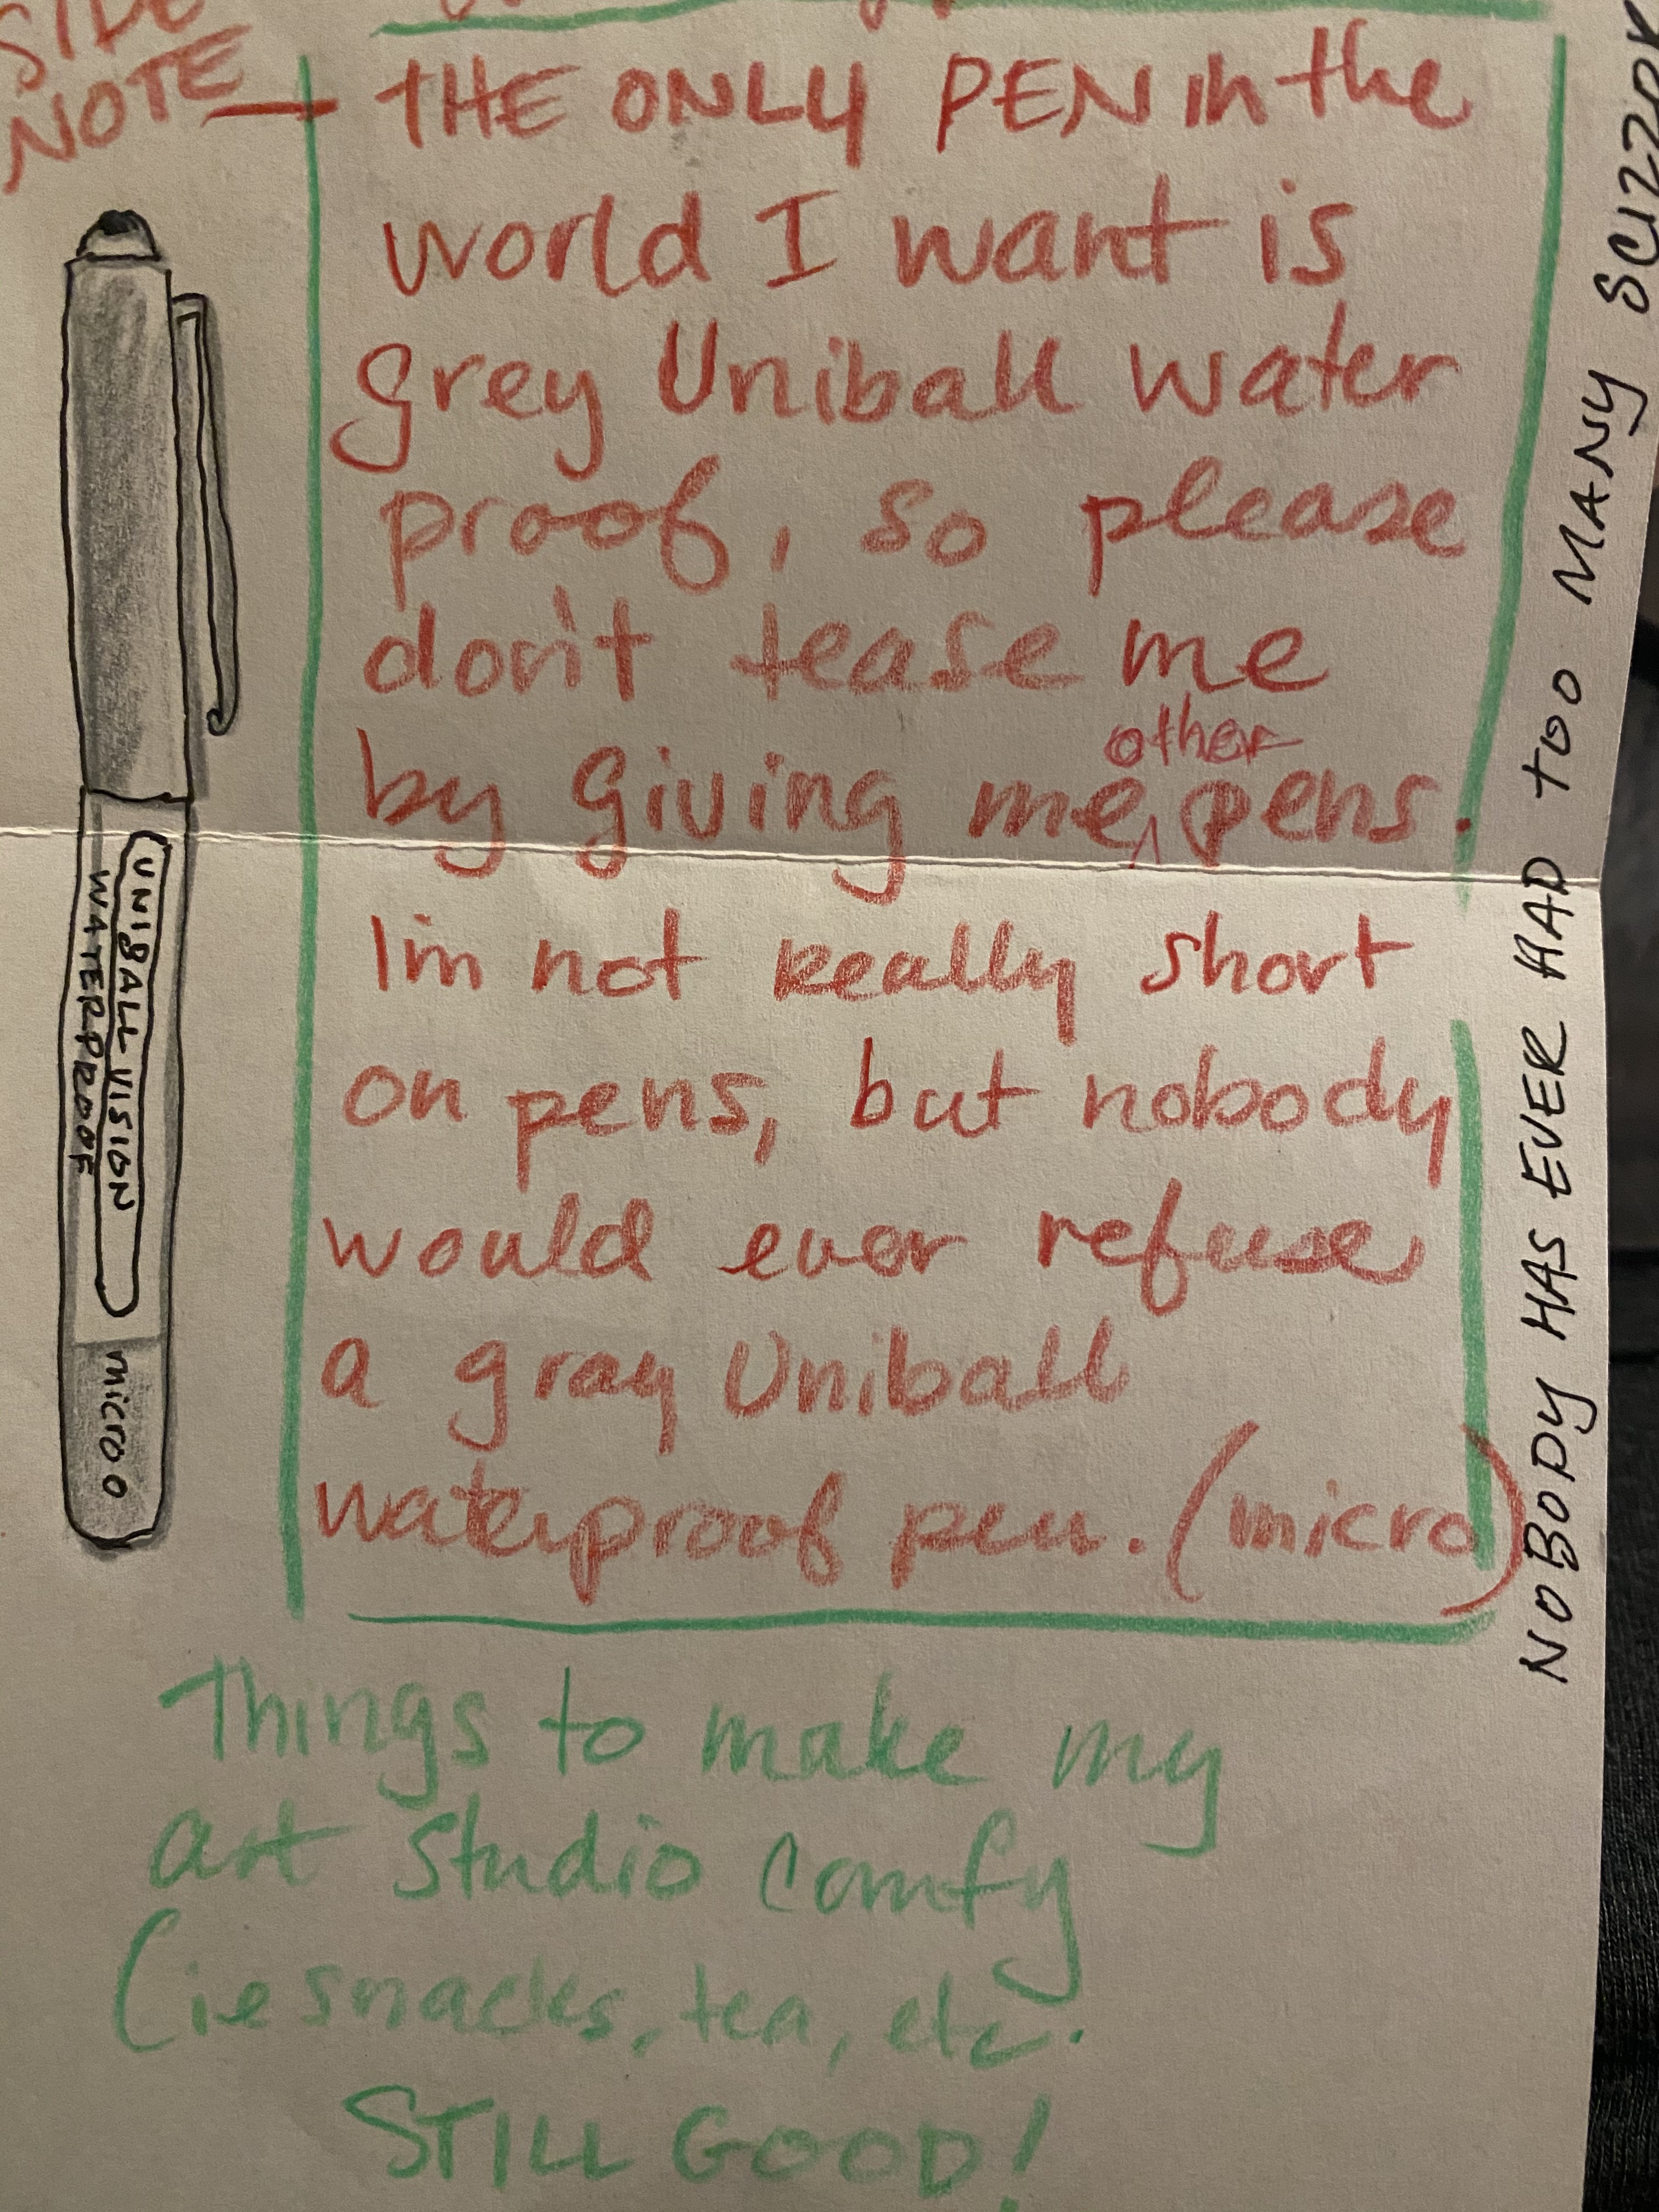 SIDE
NOTE —
THE ONLY PEN in the
world I want is
grey Uniball water
proof, so please
don't tease me
by giving me other pens.
I'm not really short
on pens, but nobody
would ever refuse
a gray Uniball
waterproof pen. (micro)
UNIBALL VISION
WATERPROOF
micro 0
NOBODY HAS EVER HAD TOO MANY
Things to make my
art studio comfy
(ie snacks, tea, etc.
STILL GOOD!